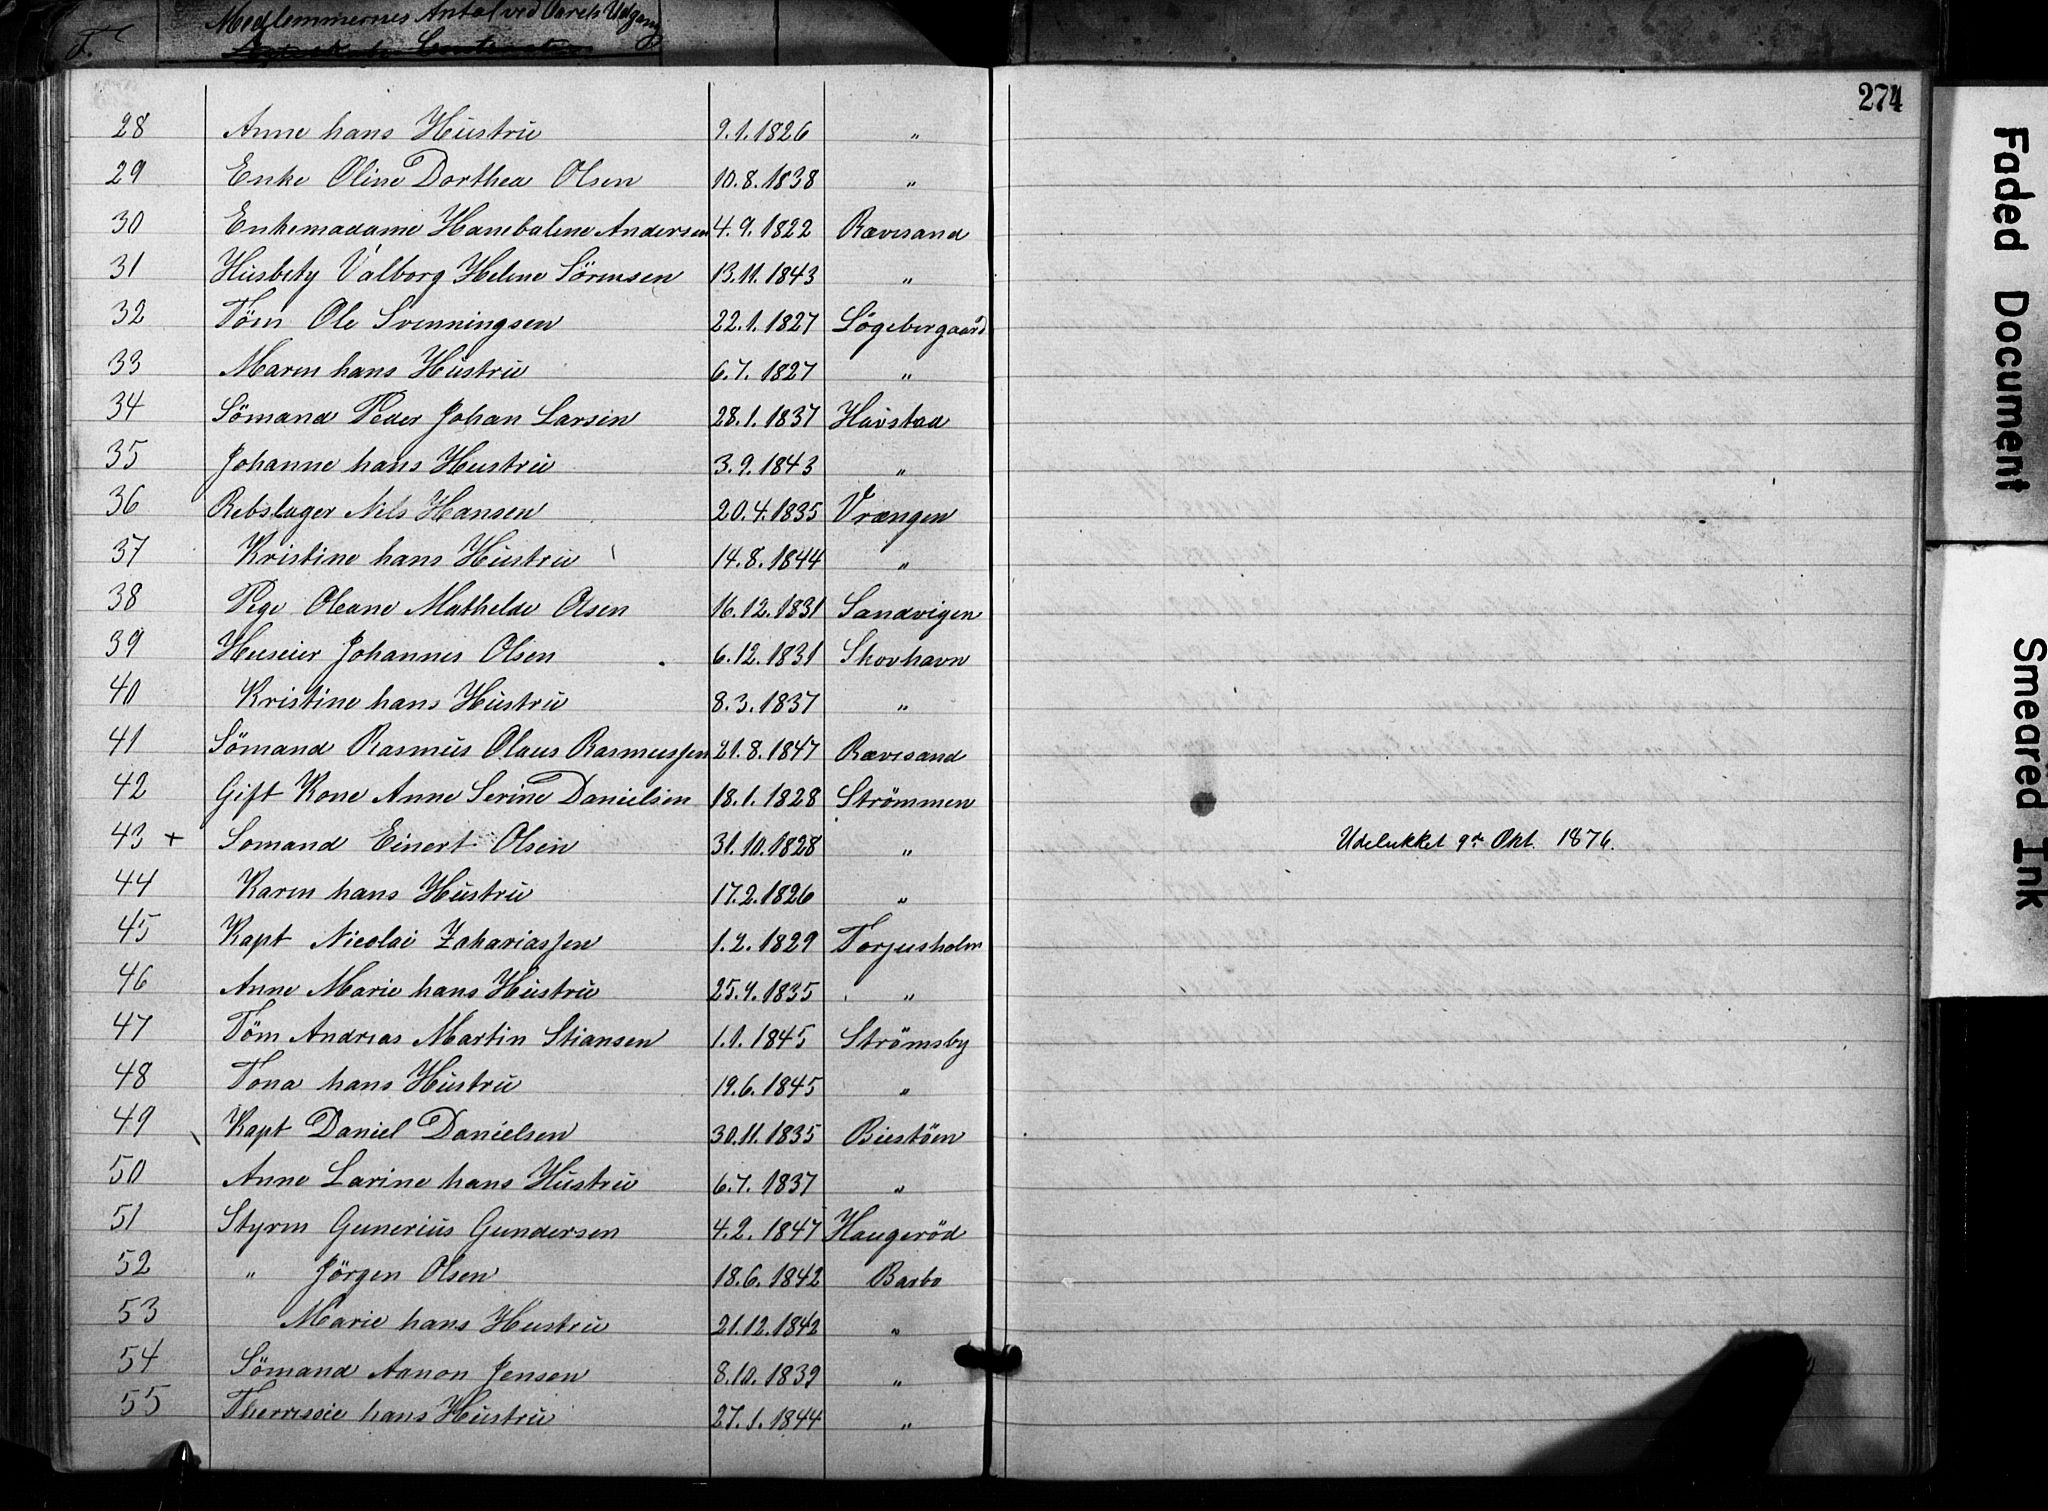 Medlemmernes Antal ved Aarets Udgang
274
28 Anne hans Hustru 9.1.1826 "
29 Enke Oline Dorthea Olsen 10.8.1838 "
30 Enkemadame Hanebaline Andersen 4.9.1822 Rævesand
31 Husbety Valborg Helene Sörensen 13.11.1843 "
32 Töm Ole Svenningsen 22.1.1827 Lögebergaard
33 Maren hans Hustru 6.7.1827 "
34 Sömand Peder Johan Larsen 28.1.1837 Havstad
35 Johanne hans Hustru 3.9.1843 "
36 Rebslager Nils Hansen 20.4.1835 Vrængen
37 Kristine hans Hustru 14.8.1844 "
38 Pige Oleane Mathelde Olsen 16.12.1831 Sandvigen
39 Huseier Johannes Olsen 6.12.1831 Skovhavn
40 Kristine hans Hustru 8.3.1837 "
41 Sömand Rasmus Olaus Rasmussen 21.8.1847 Rævesand
42 Gift Kone Anne Serine Danielsen 18.1.1828 Strömmen
43 + Somand Einert Olsen 31.10.1828 " Udelukket 9de Okt. 1876.
44 Karen hans Hustru 17.2.1826 "
45 Kapt Nicolai Zakariassen 1.2.1829 Torjusholm
46 Anne Marie hans Hustru 25.4.1835 "
47 Töm Andreas Martin Stiansen 1.1.1845 Strömsby
48 Tona hans Hustru 19.6.1845 "
49 Kapt Daniel Danielsen 30.11.1835 Biestöen
50 Anne Larine hans Hustru 6.7.1837 "
51 Styrm Gunerius Gundersen 4.2.1847 Haugeröd
52 " Jörgen Olsen 18.6.1842 Barbo
53 Marie hans Hustru 21.12.1842 "
54 Sömand Aanon Jensen 8.10.1839 "
55 hans Hustru 27.1.1844 "
Faded Document
Smeared Ink